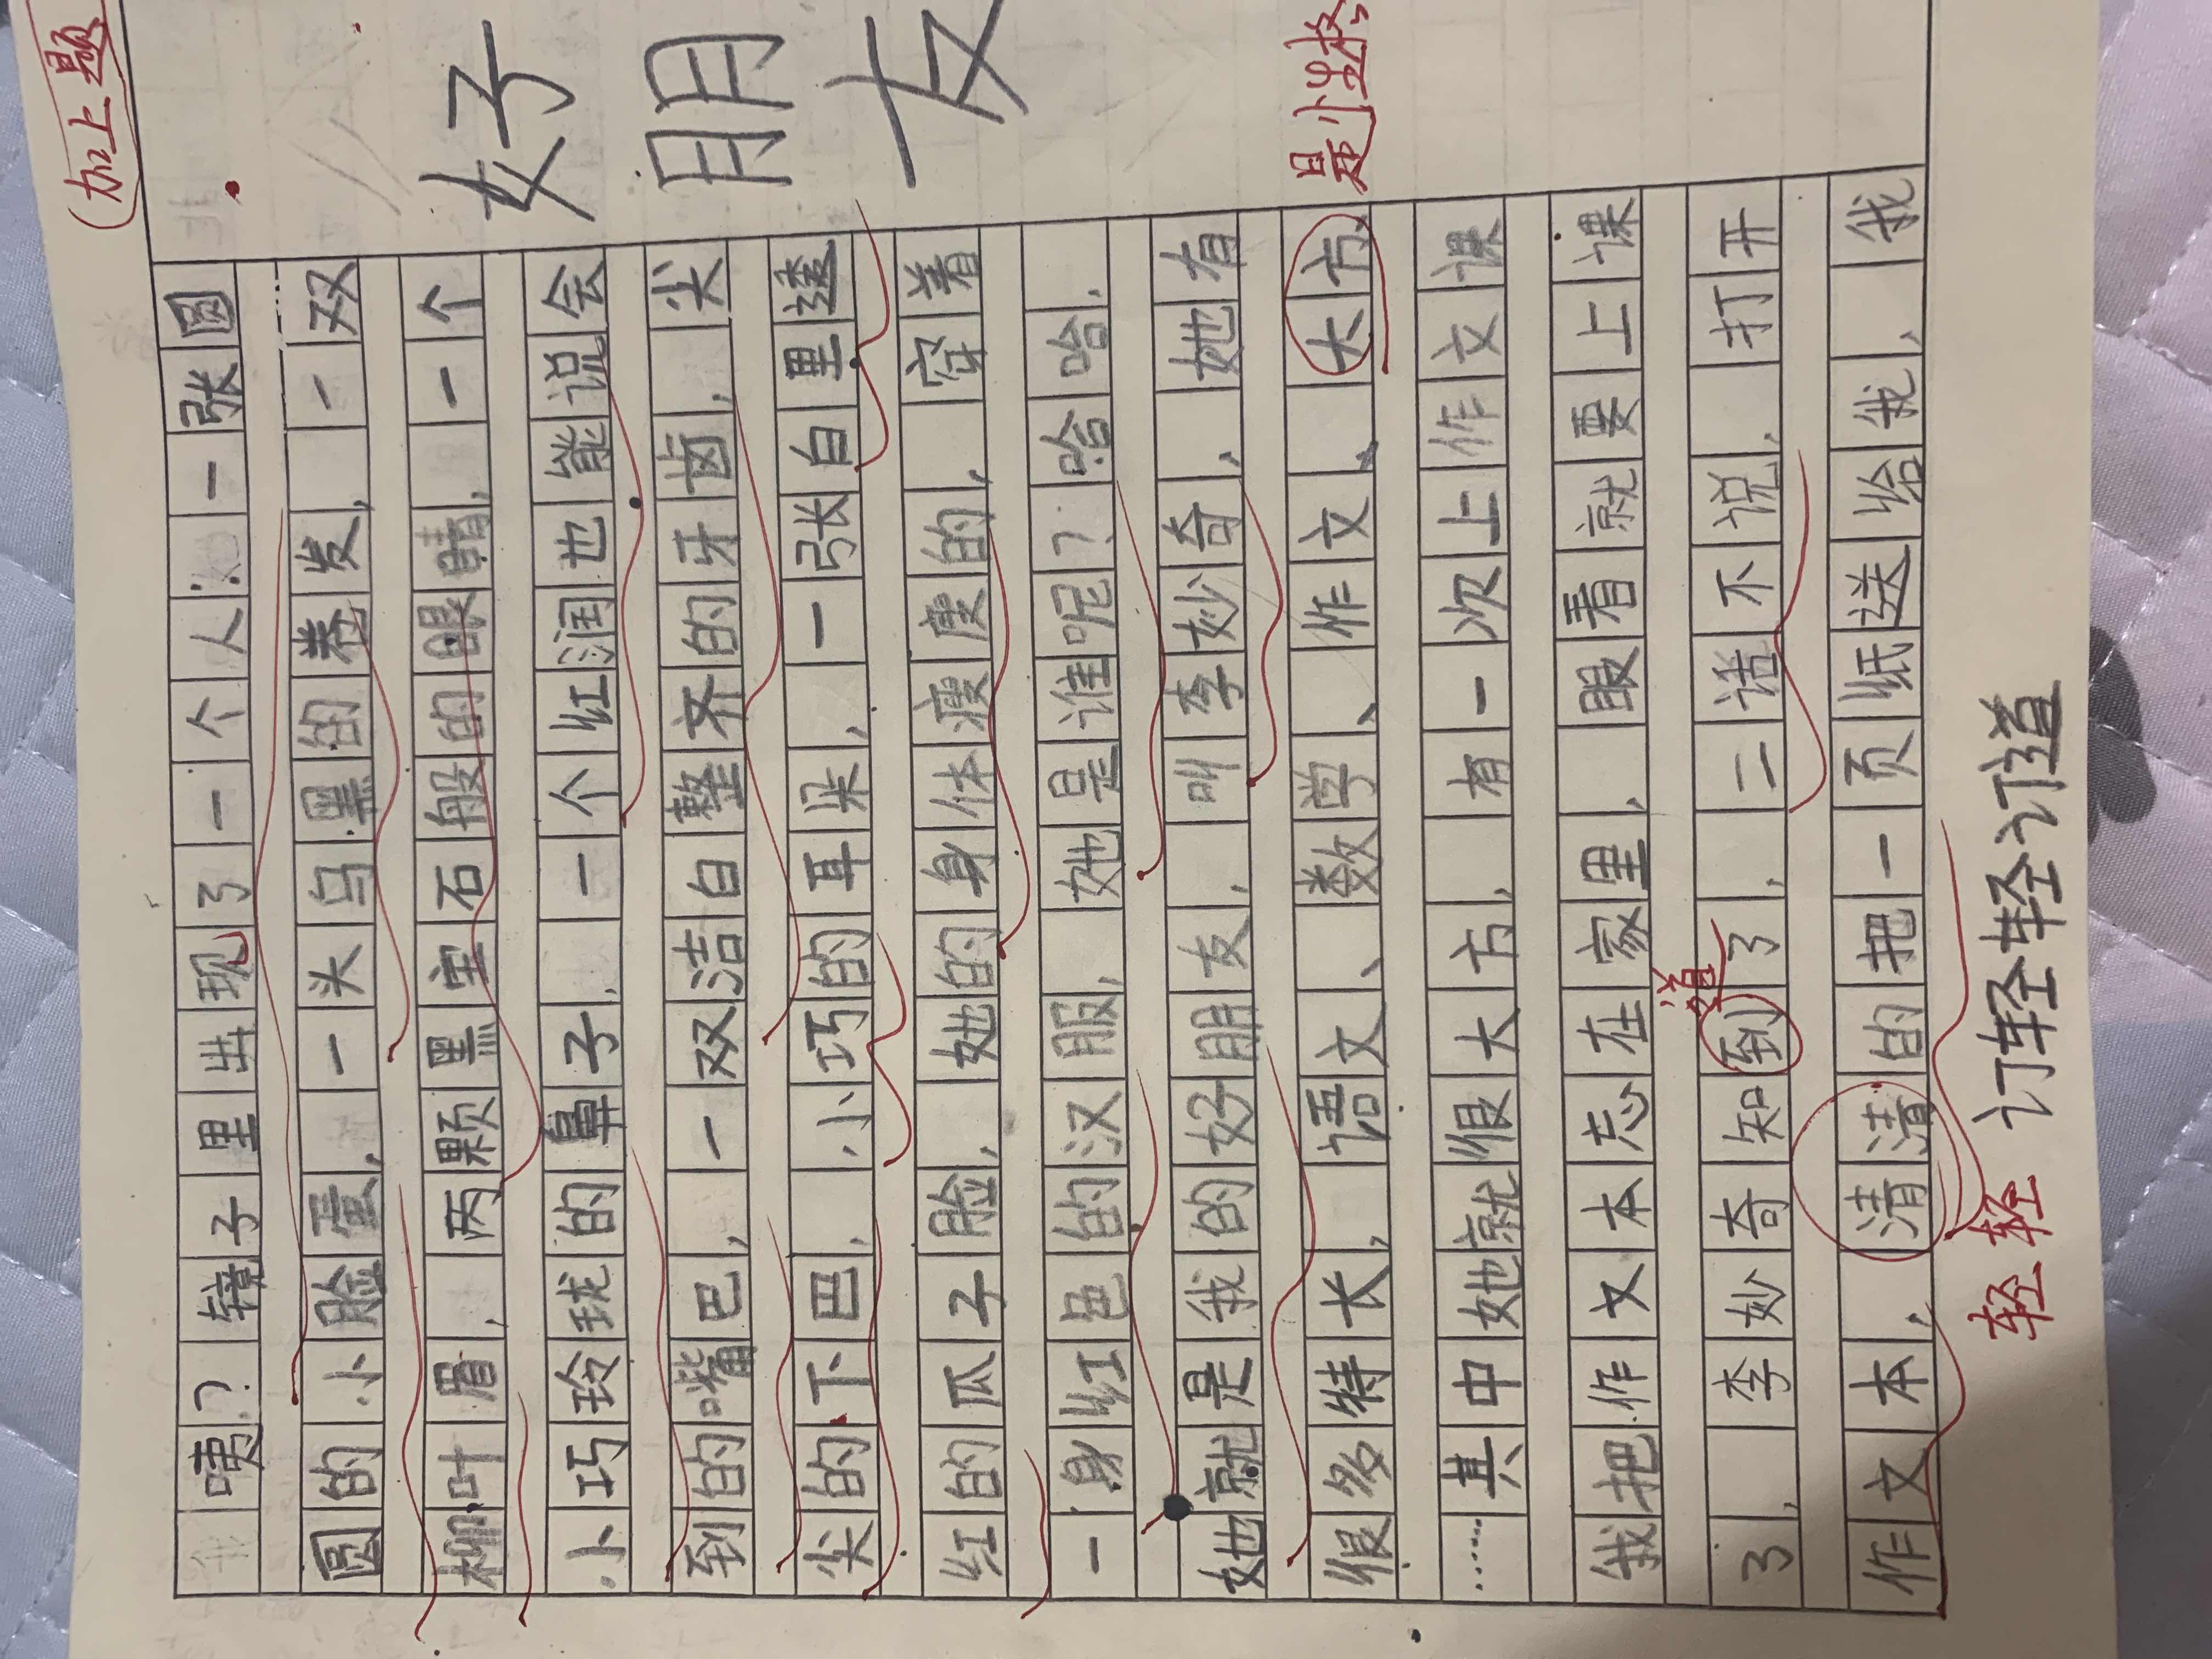 加上题
好朋友
咦？镜子里出现了一个人：一张圆
圆的小脸蛋，一头乌黑的卷发，一双
柳叶眉，两颗黑宝石般的眼睛，一个
小巧玲珑的鼻子，一个红润也能说会
到的嘴巴，一双洁白整齐的牙齿，尖
尖的下巴，小巧的耳朵，一张白里透
红的瓜子脸，她的身体瘦瘦的，穿着
一身红色的汉服，她是谁呢？哈哈，
她就是我的好朋友，叫李妙奇，她有
很多特长，语文、数学、作文、大方
是性格
……其中她就很大方，有一次上作文课
我把作文本忘在家里，眼看就要上课
了，李妙奇知到了，二话不说，打开
道
作文本，清清的把一页纸送给我，我
轻轻
订轻轻订道